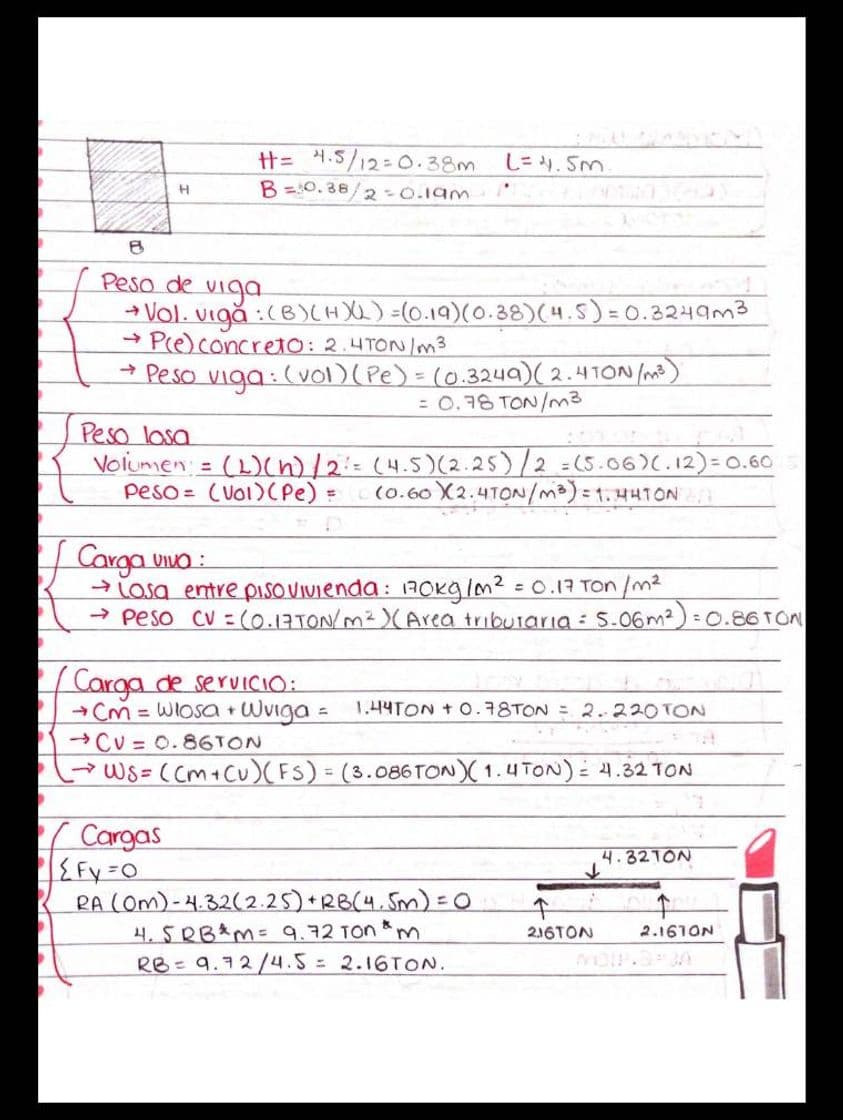 H= 4.5/12=0.38m L=4.5m.
B=0.38/2=0.19m
H
B
Peso de viga
→Vol. viga:(B)(H)(L)=(0.19)(0.38)(4.5)=0.3249m³
→ P(e) concreto: 2.4TON/m³
→ Peso viga:(vol)(Pe)=(0.3249)(2.4TON/m³)
= 0.78 TON/m³
Peso losa
Volumen:=(L)(h)/2:=(4.5)(2.25)/2=(5.06)(.12)=0.60
Peso=(Vol)(Pe)= (0.60)(2.4TON/m³)=1.44TON
Carga viva:
→ Losa entrepiso vivienda: 170kg/m² = 0.17 Ton/m²
→ Peso CV=(0.17TON/m²)(Area tributaria = 5.06m²)=0.86TON
Carga de servicio:
→Cm= Wlosa+Wviga= 1.44TON+0.78TON = 2.220TON
→CV= 0.86TON
→ WS=(Cm+Cv)(FS)=(3.086TON)(1.4TON)=4.32TON
Cargas
ΣFy=0
4.32TON
RA(0m)-4.32(2.25)+RB(4.5m)=0
4.5RB*m= 9.72Ton*m
2.16TON 2.16TON
RB= 9.72/4.5= 2.16TON.